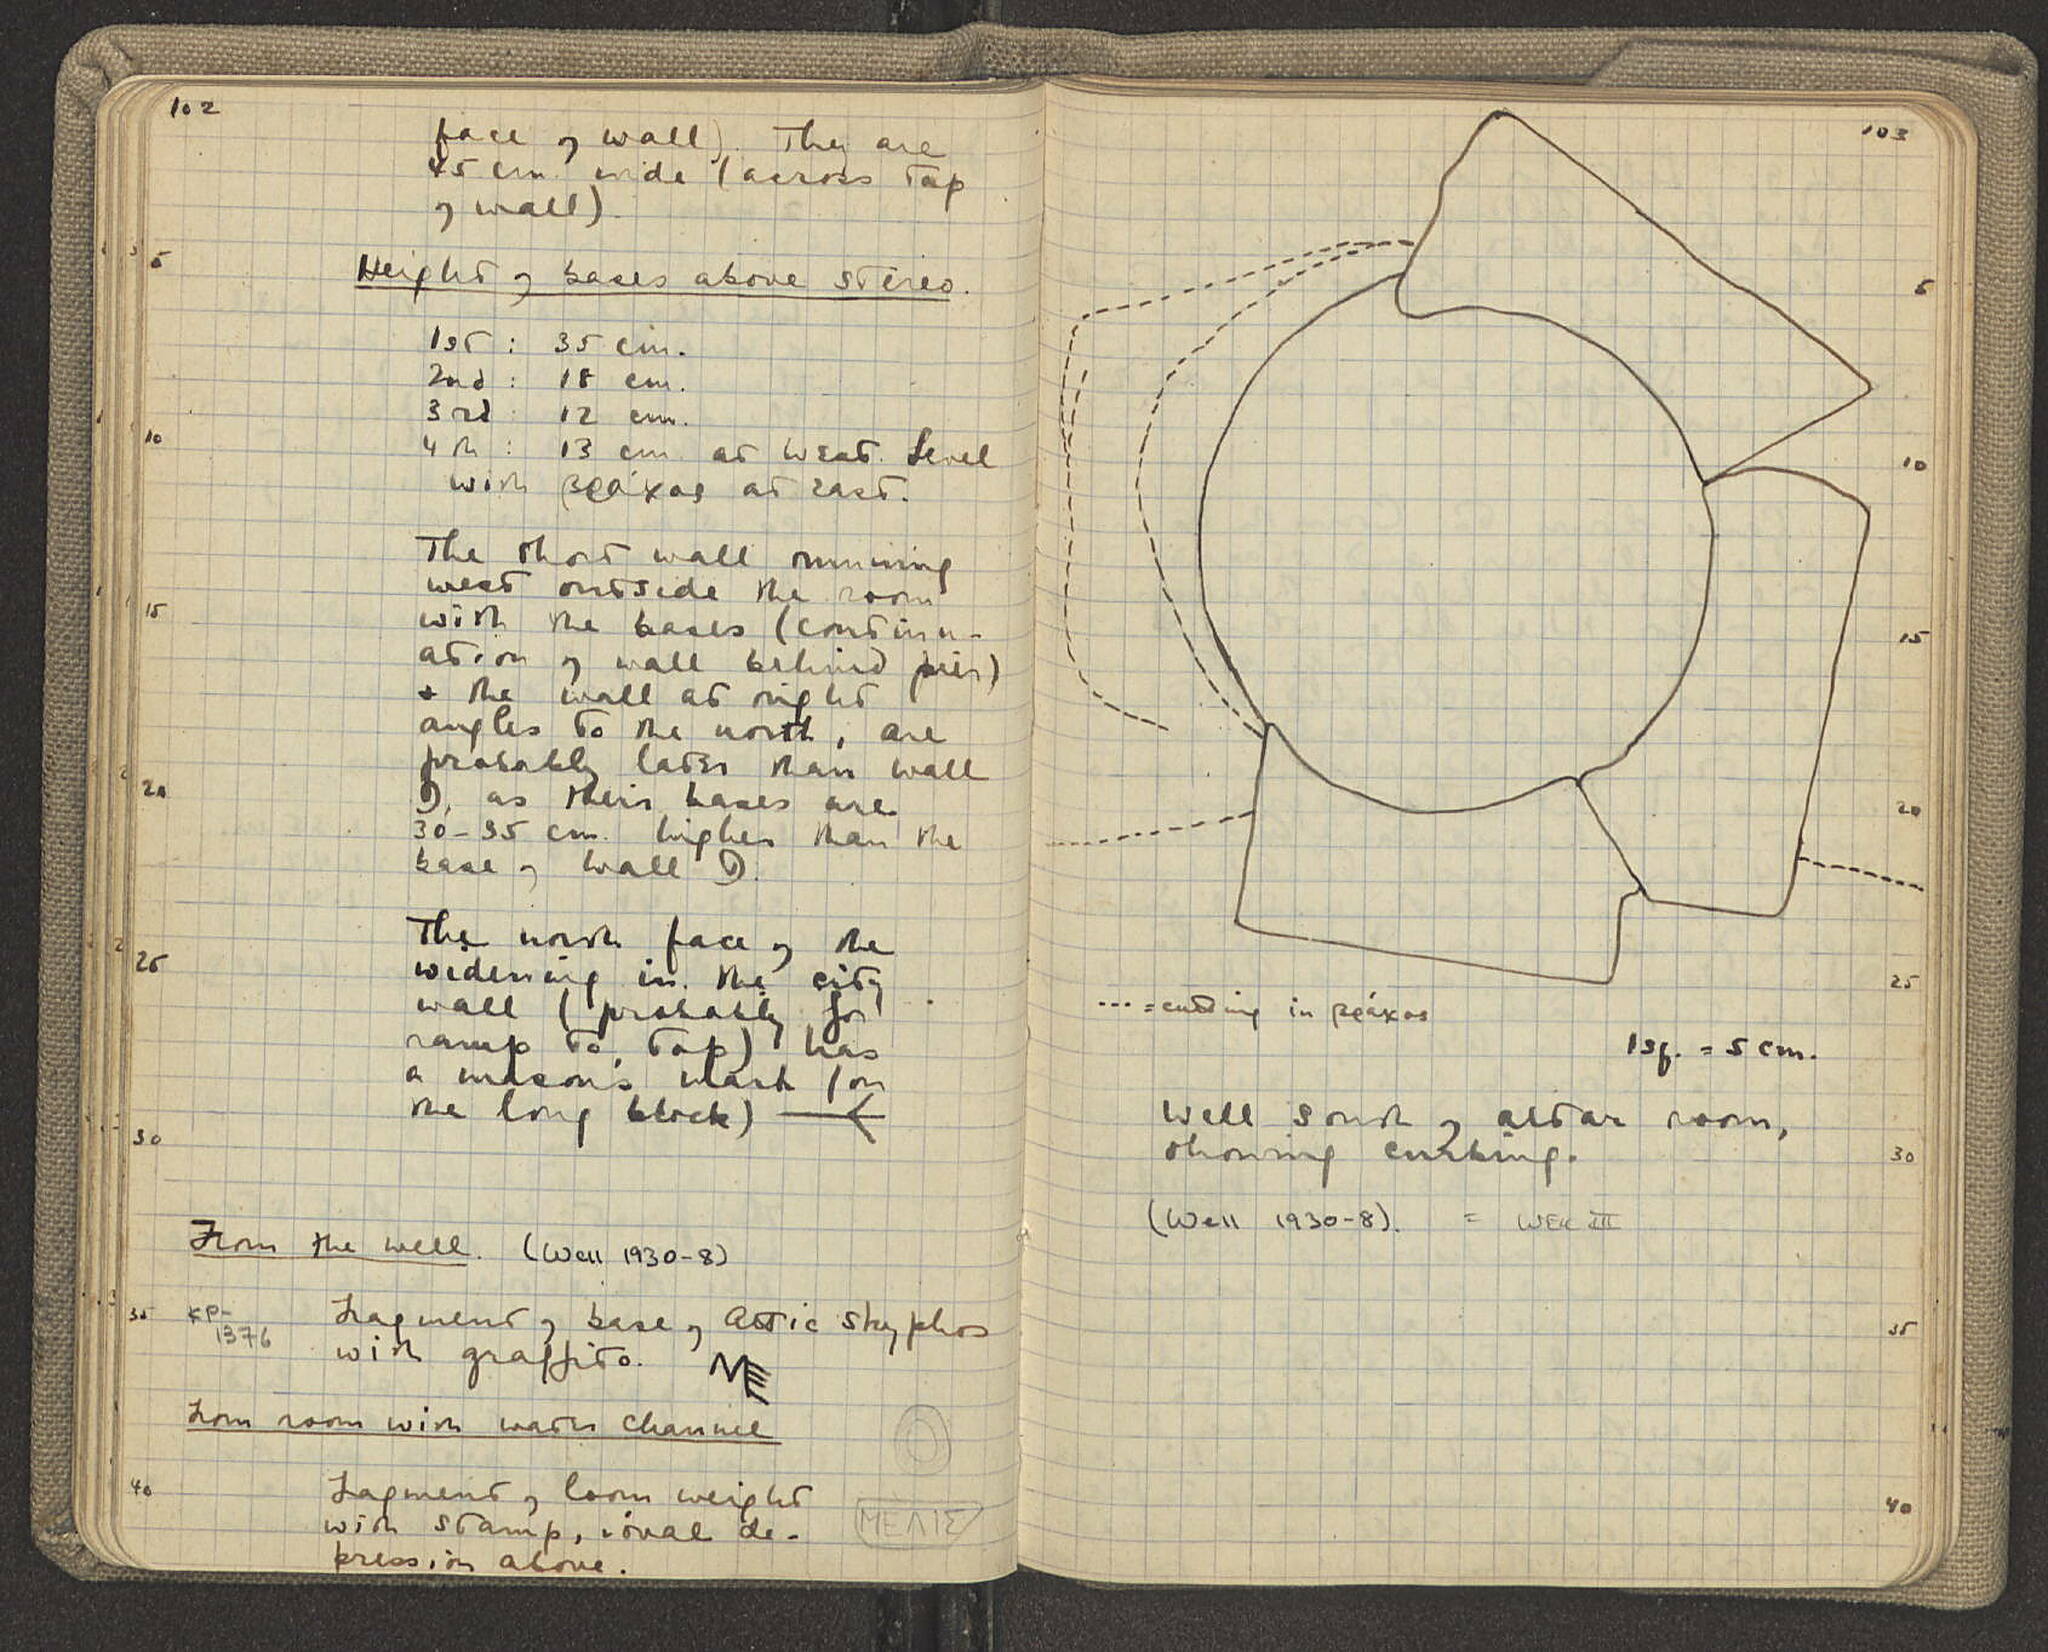 102
face of wall). They are
45 cm. wide (across top
of wall).
Height of bases above stereo.
1st : 35 cm.
2nd : 18 cm.
3rd : 12 cm.
4th : 13 cm. at west. Level
with βράχος at east.
The short wall running
west outside the room
with the bases (continu-
ation of wall behind pier)
+ the wall at right
angles to the north, are
probably later than wall
D, as their bases are
30-35 cm. higher than the
base of wall D.
The north face of the
widening in the city
wall (probably for
ramp to top) has
a mason's mark (on
the long block)
From the well. (Well 1930-8)
KP-
1376
Fragment of base of Attic skyphos
with graffito. ME
From room with water channel
Fragment of loom weight
with stamp, oval de-
pression above.
ΜΕΛΙΣ
5
10
15
20
25
30
35
40
103
--- = cutting in βράχος
1 sq. = 5 cm.
Well south of altar room,
showing curbing.
(Well 1930-8). = Well III
5
10
15
20
25
30
35
40